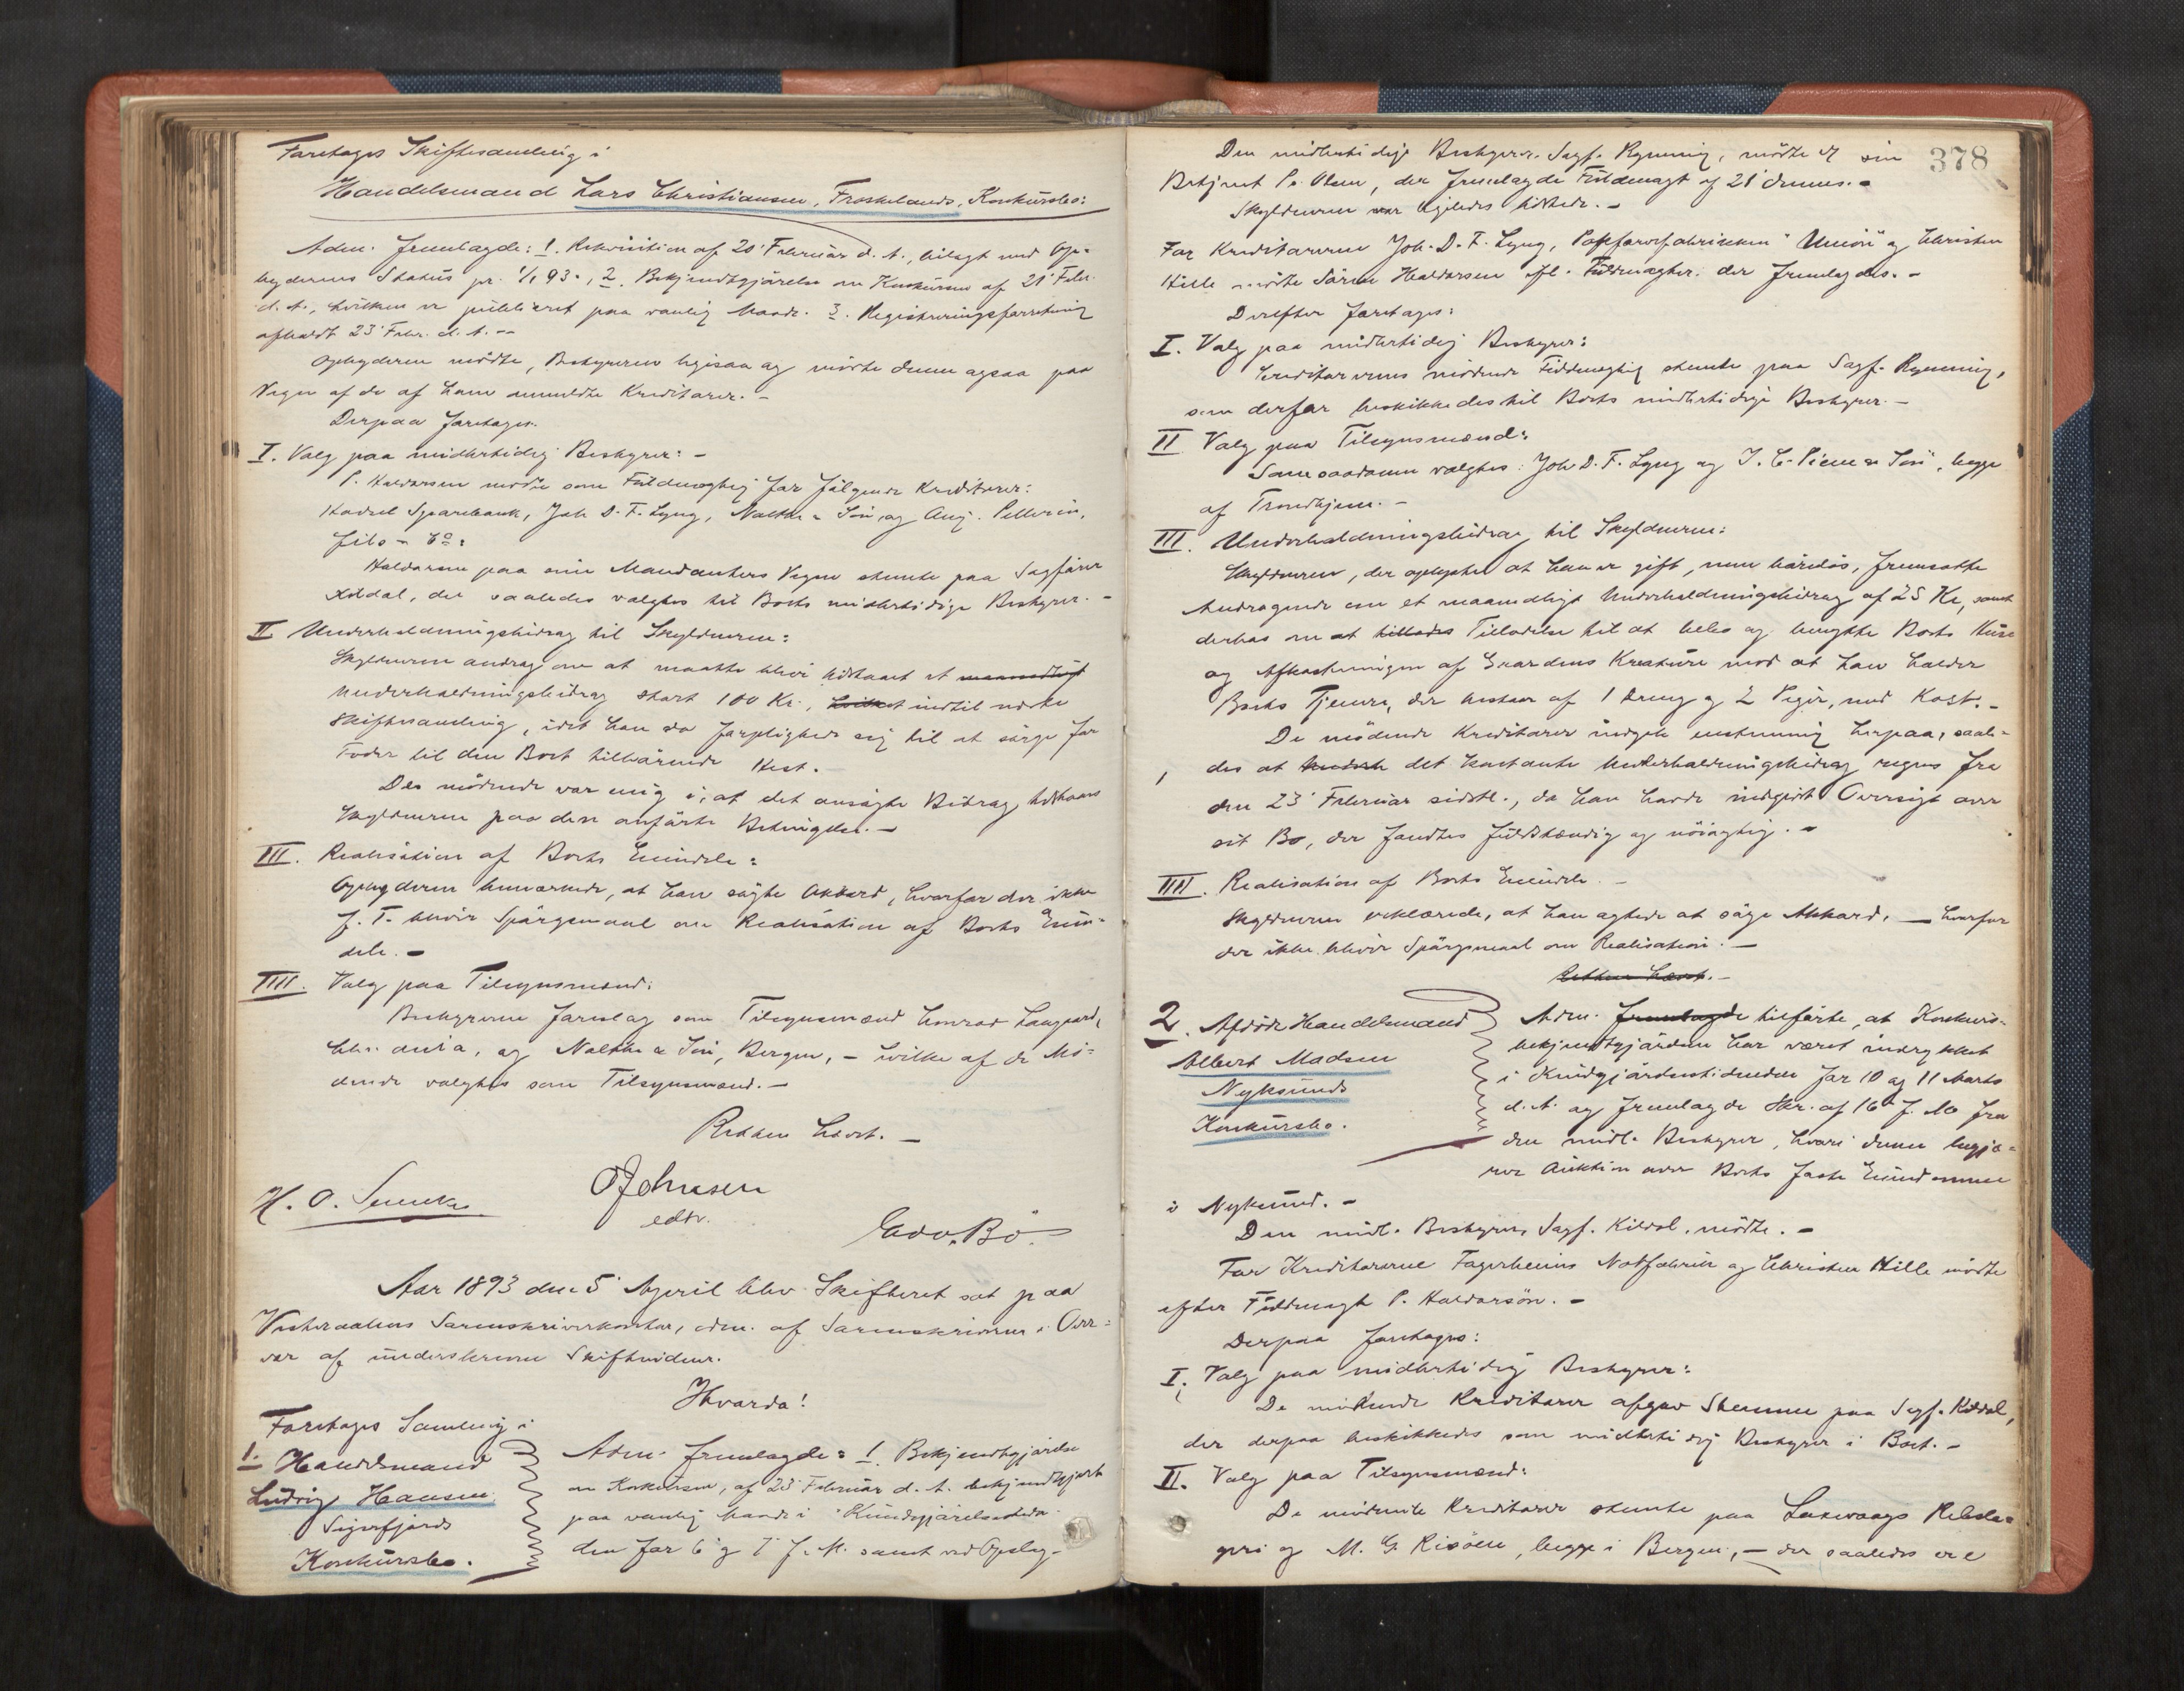 Foretages Skiftesamling i
Handelsmand Lars Christiansen, Froskelands, Konkursbo:
Adm. fremlagde: 1. Rekvisition af 20' Februar d. A., bilagt med Op-
byderens Status pr. 1/1 93., 2. Bekjendtgjørelse om Konkursen af 21' Febr.
d. A., hvilken er publiceret paa vanlig Maade. 3. Registreringsforretning
afholdt 23' Febr. d. A. --
Opbyderen mødte, Bestyreren ligesaa og mødte denne ogsaa paa
Vegne af de af ham anmeldte Kreditorer. -
Derpaa foretages.
I. Valg paa midlertidig Bestyrer: -
P. Haldorsen mødte som Fuldmægtig for følgende Kreditorer:
Hadsel Sparebank, Joh. D. F. Lyng, & Søn, og Aug. Pellerin,
fils & Co:
Haldorsen paa sine Mandanters Vegne stemte paa Sagfører
Kildal, der saaledes valgtes til Boets midlertidige Bestyrer. -
II Underholdningsbidrag til Skyldneren:
Skyldneren androg om at maatte blive tilstaaet et maanedligt
Underholdningsbidrag stort 100 Kr., hvilket indtil næste
Skiftesamling, idet han da forpligtede sig til at sørge for
Foder til den Boet tilhørende Hest.
De mødende var enig i, at det ansøgte Bidrag tilstaaes
Skyldneren paa den anførte Betingelse. -
III. Realisation af Boets Eiendele:
Opbyderen bemærkede, at han søgte Akkord, hvorfor der ikke
f. T. bliver Spørgsmaal om Realisation af Boets Eien-
dele. -
IIII. Valg paa Tilsynsmænd:
Bestyreren foreslog som Tilsynsmænd Conrad Langaard,
Chr.ania, og & Søn, Bergen, - hvilke af de Mø-
dende valgtes som Tilsynsmænd. -
Retten hævet. -
H. O.
O Johnsen
edsv.
Edv. Bö.
Aar 1893 den 5' April blev Skifteret sat paa
Vesteraalens Sorenskriverkontor, adm. af Sorenskriveren i Over-
vær af underskrevne Skiftevidner.
Hvorda!
Foretages Samling i
1. Handelsmand
Ludvig Hansen
Sigerfjords
Konkursbo.
Adm. fremlagde: 1. Bekjendtgjørelse
om Konkursen, af 23' Februar d. A. bekjendtgjort
paa vanlig Maade i "Kundgjørelsestiden-
den for 6 og 7 f. M. samt ved Opslag. -
378
Den midlertidige Bestyrer, Sagf. Rynning, mødte ved sin
Betjent P. Olsen, der fremlagde Fuldmagt af 21' dennes. -
Skyldneren var ligeledes tilstede. -
For Kreditorerne Joh. D. F. Lyng, Papfarvefabrikken "Union" og Christen
Hille mødte Søren Haldorsen efl. Fuldmagter, der fremlagdes. -
Derefter foretages:
I. Valg paa midlertidig Bestyrer:
Kreditorernes mødende Fuldmægtig stemte paa Sagf. Rynning,
som derfor beskikkedes til Boets midlertidige Bestyrer. -
II Valg paa Tilsynsmænd:
Som saadanne valgtes: Joh. D. F. Lyng og I. C. Piene & Søn, begge
af Trondhjem. -
III. Underholdningsbidrag til Skyldneren:
Skyldneren, der oplyste at han er gift, men barnløs, fremsatte
Andragende om et maanedligt Underholdningsbidrag af 25 Kr, samt
derhos om at tillades Tilladelse til at bebo og benytte Boets Huse
og Afkastningen af Gaardens Kreature mod at han holder
Boets Tjenere, der bestaar af 1 Dreng og 2 Piger, med Kost. -
De mødende Kreditorer indgik enstemmig herpaa, saale-
des at det kontante Underholdningsbidrag regnes fra
den 23' Februar sidstl., da han havde indgivet Oversigt over
sit Bo, der fandtes fuldstændig og nøiagtig. -
IIII. Realisation af Boets Eiendele. -
Skyldneren erklærede, at han agtede at søge Akkord, - hvorfor
der ikke bliver Spørgsmaal om Realisation. -
Retten hævet. -
2. Afdøde Handelsmand
Albert Madsen
Nyksunds
Konkursbo.
Adm. fremlagde tilførte, at Konkurs-
bekjendtgjørelsen har været indrykket
i Kundgjørelsestidenden for 10 og 11 Marts
d. A. og fremlagde Skr. af 16' f. M fra
den midl. Bestyrer, hvori denne begjæ-
rer Auktion over Boets faste Eiendomme
i Nyksund. -
Den midl. Bestyrer, Sagf. Kildal, mødte. -
For Kreditorerne Fagerheims Notfabrik og Christen Hille mødte
efter Fuldmagt P. Haldorsøn. -
Derpaa foretages:
I. Valg paa midlertidig Bestyrer:
De mødende Kreditorer afgav Stemme paa Sagf. Kildal,
der derpaa beskikkedes som midlertidig Bestyrer i Boet. -
II. Valg paa Tilsynsmænd:
De mødende Kreditorer stemte paa Laxevaags Rebsla-
geri og M. G. Risøen, begge i Bergen, - der saaledes ere